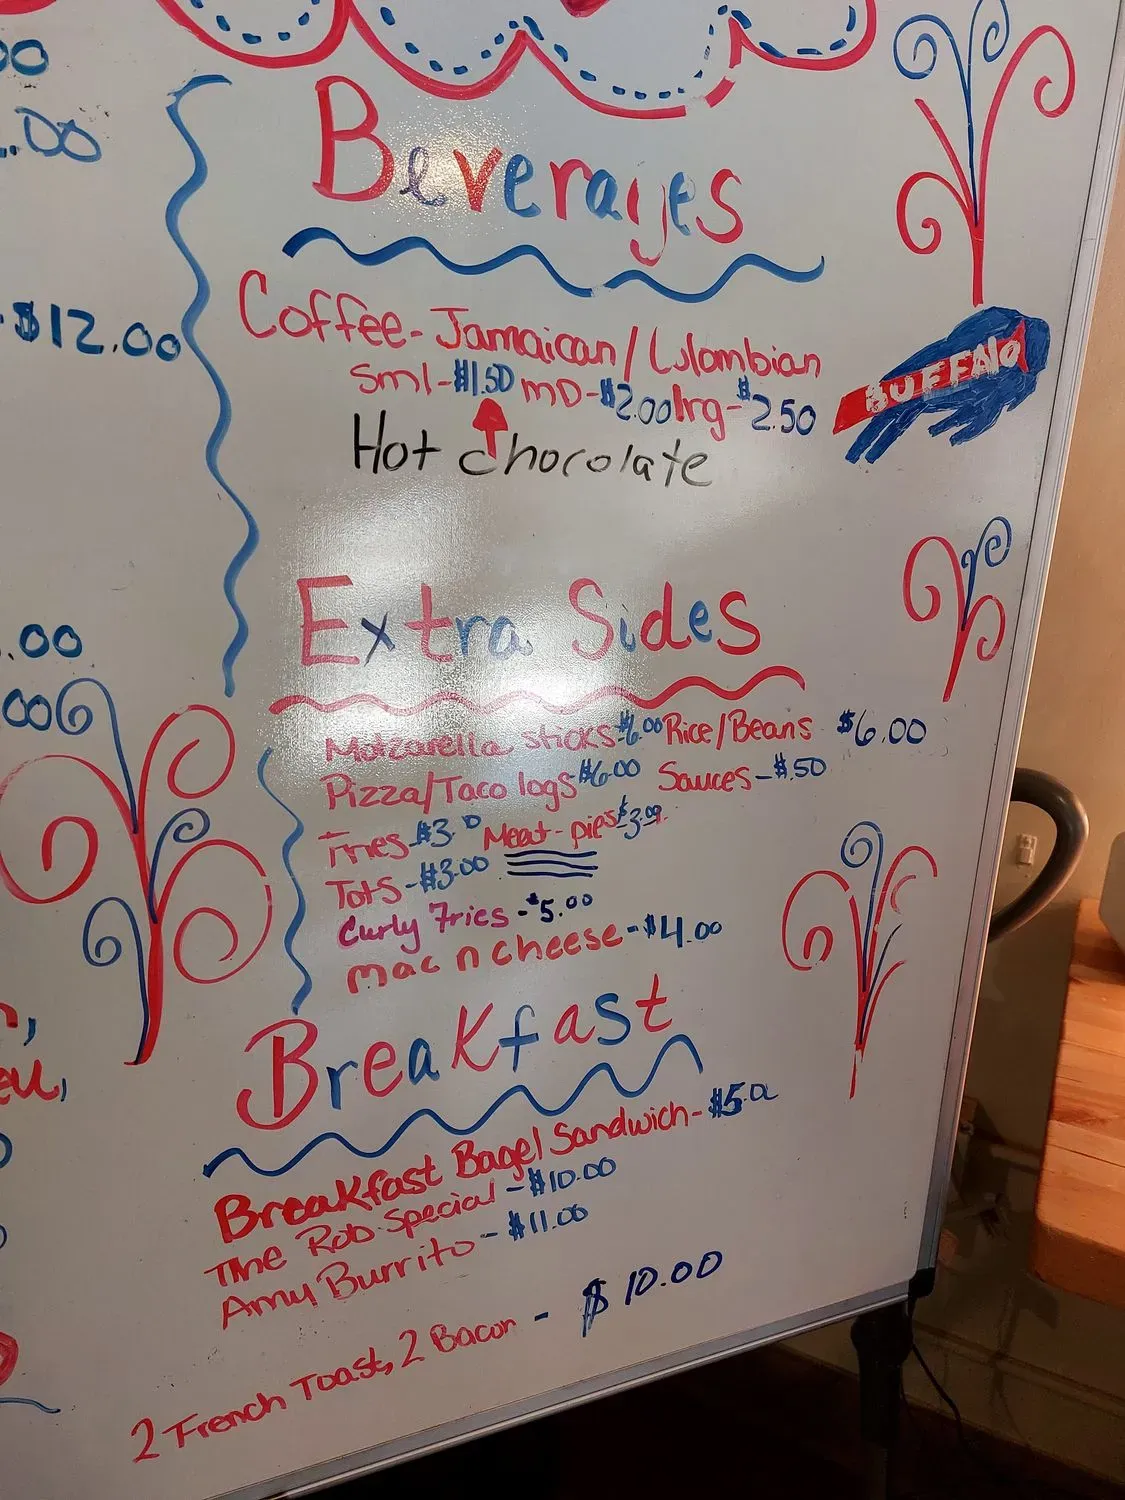 Beverages
Coffee-Jamaican/Colombian
Sml-$1.50 mD-$2.00 lrg-$2.50
Hot chocolate
BUFFALO
Extra Sides
Motzarella sticks-$6.00 Rice/Beans $6.00
Pizza/Taco logs $6.00 Sauces-$.50
Fries $3. Meat-pies $3.00
Tots-$3.00
Curly Fries-$5.00
mac n cheese-$4.00
Breakfast
Breakfast Bagel Sandwich-$5.0
The Rob Special-$10.00
Amy Burrito-$11.00
2 French Toast, 2 Bacon - $10.00
.00
.00
-$12.00
.00
.00